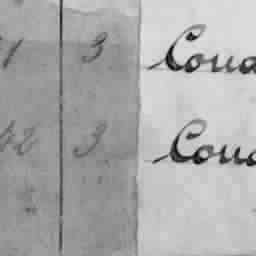 1 3 Coua
42 3 Coua